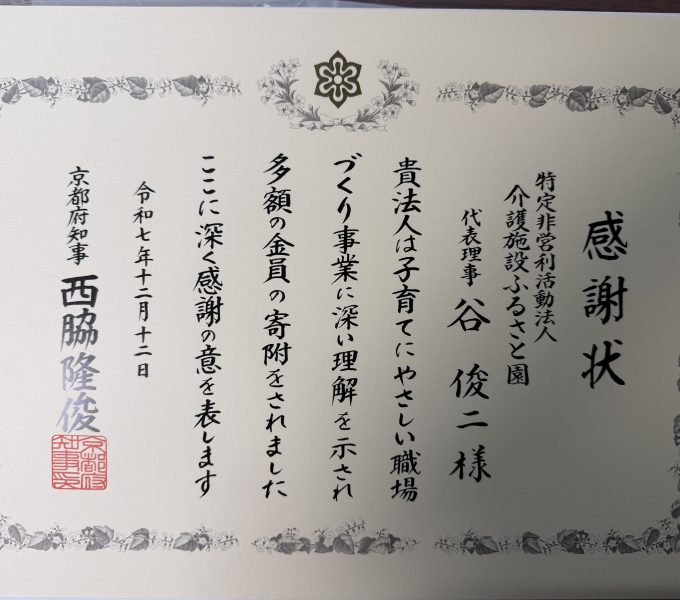 感謝状
特定非営利活動法人
介護施設ふるさと園
代表理事 谷俊二様
貴法人は子育てにやさしい職場
づくり事業に深い理解を示され
多額の金員の寄附をされました
ここに深く感謝の意を表します
令和七年十二月十二日
京都府知事 西脇隆俊
京都府知事之印